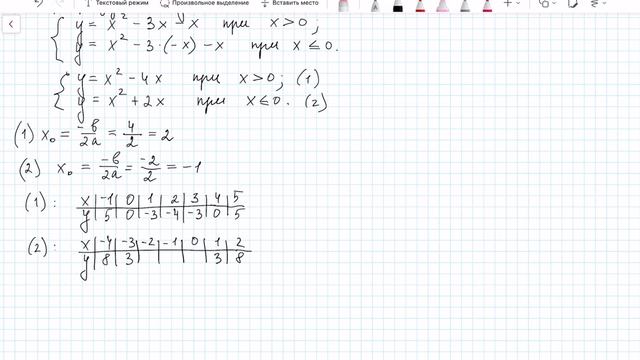 Текстовый режим Произвольное выделение Вставить место
y = x² - 3x - x при x > 0 ;
y = x² - 3·(-x) - x при x ≤ 0.
y = x² - 4x при x > 0; (1)
y = x² + 2x при x ≤ 0. (2)
(1) x₀ = -в/2a = 4/2 = 2
(2) x₀ = -в/2a = -2/2 = -1
(1) : x | -1 | 0 | 1 | 2 | 3 | 4 | 5
y | 5 | 0 | -3 | -4 | -3 | 0 | 5
(2) : x | -4 | -3 | -2 | -1 | 0 | 1 | 2
y | 8 | 3 | | | | 3 | 8